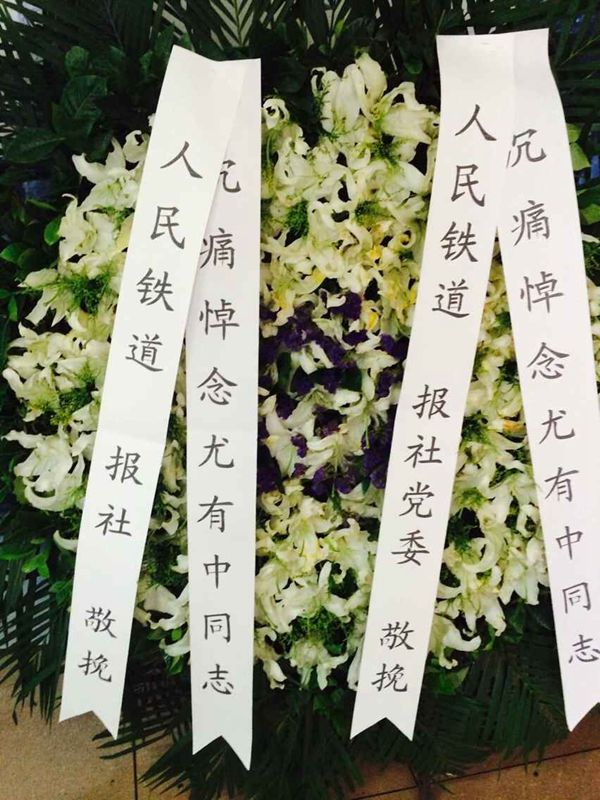 人民铁道 报社 敬挽
沉痛悼念尤有中同志
人民铁道 报社党委 敬挽
沉痛悼念尤有中同志